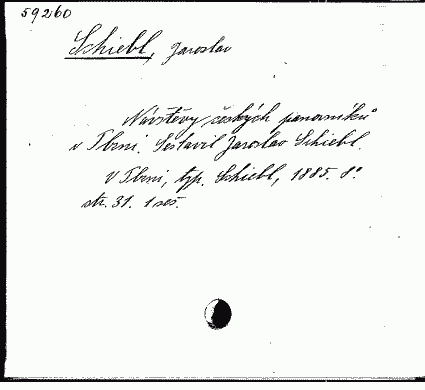 59260
Schiebl, Jaroslav
Návštěvy českých panovníků
v Plzni. Sestavil Jaroslav Schiebl.
V Plzni, typ. Schiebl, 1885. 8°.
str. 31. 1 seš.